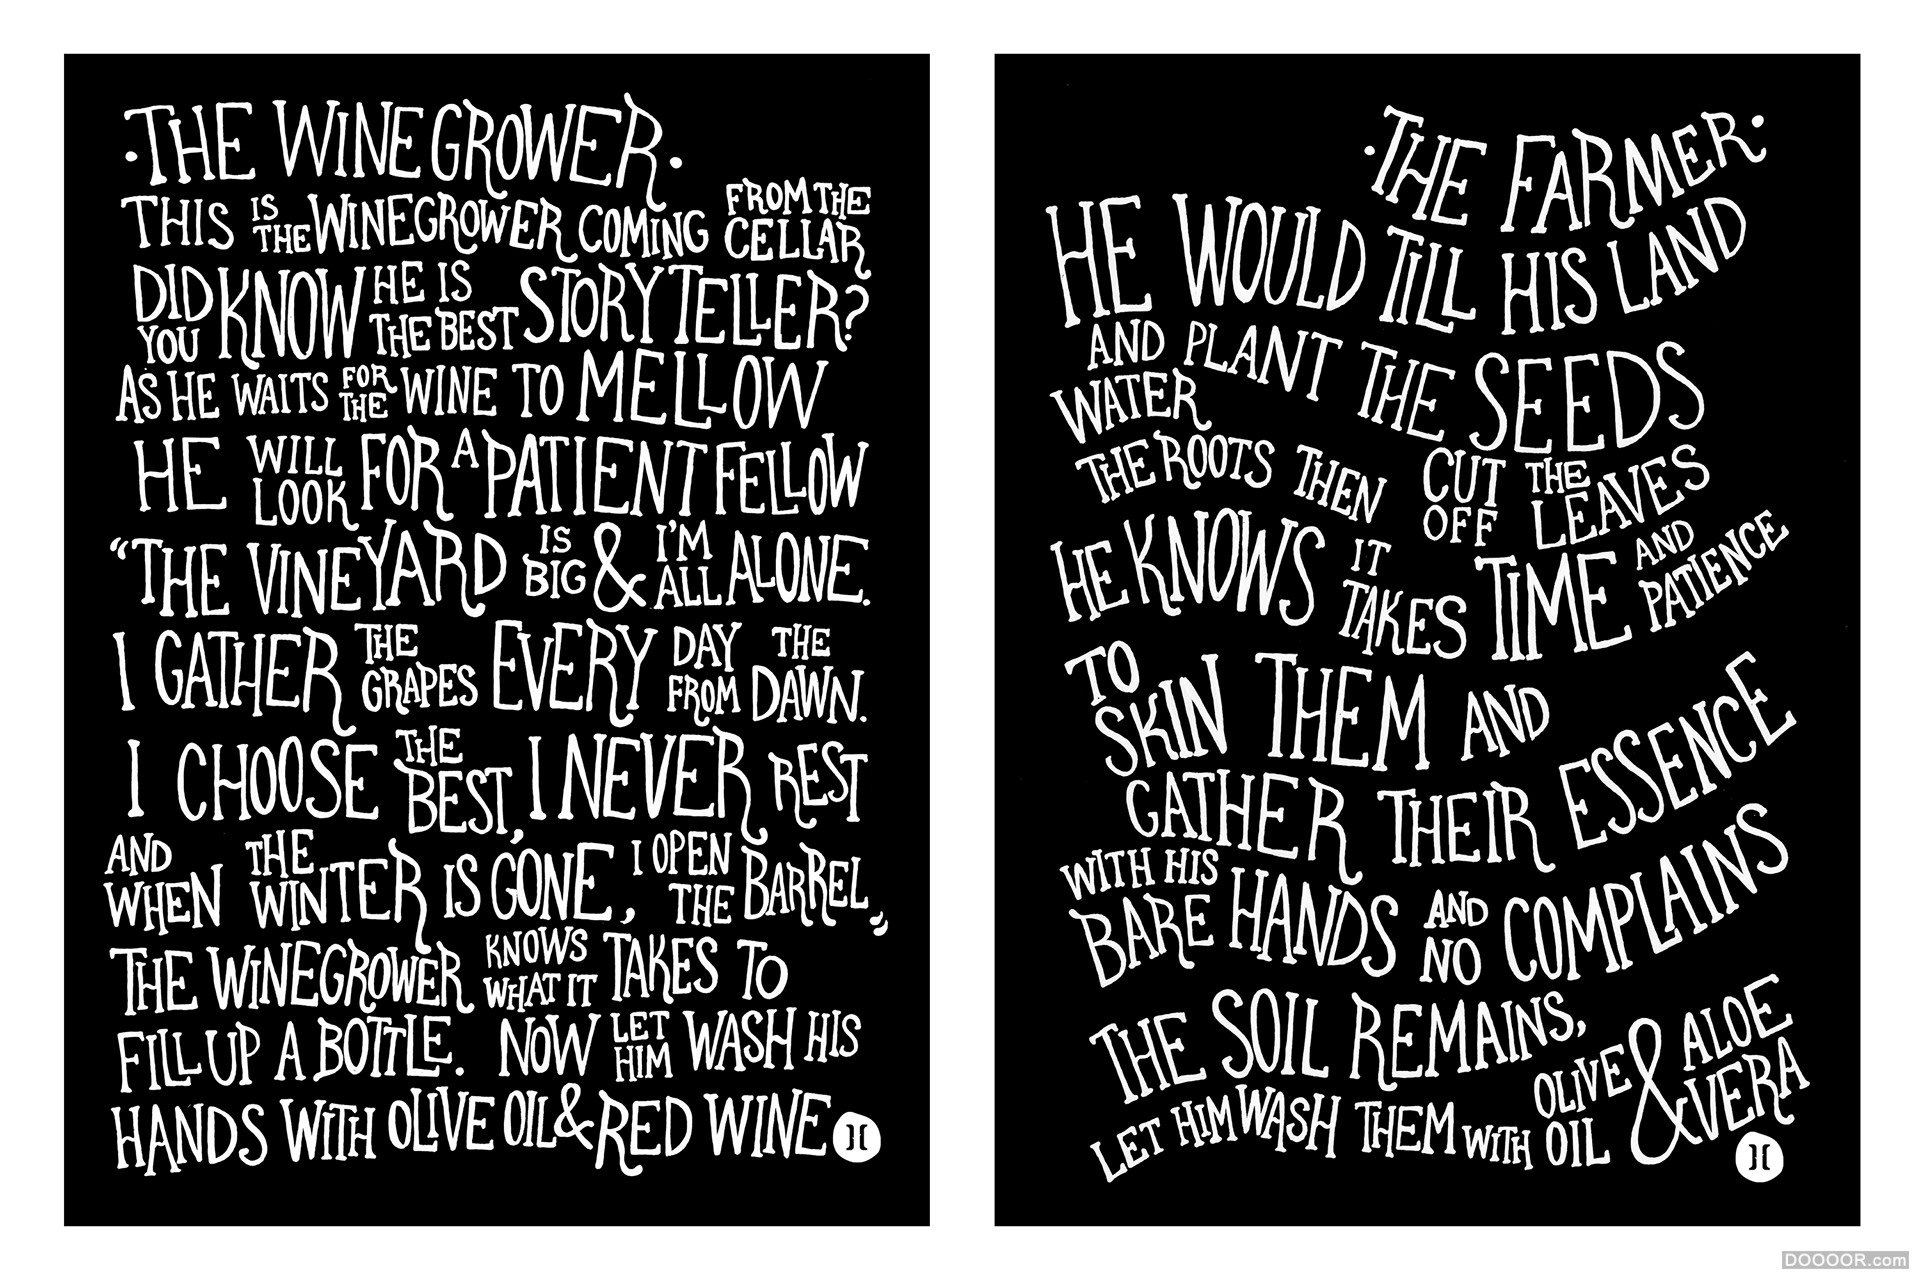 ·THE WINEGROWER·
THIS IS THE WINEGROWER COMING FROM THE CELLAR
DID YOU KNOW HE IS THE BEST STORYTELLER?
AS HE WAITS FOR THE WINE TO MELLOW
HE WILL LOOK FOR A PATIENT FELLOW
“THE VINEYARD IS BIG & I'M ALL ALONE.
I GATHER THE GRAPES EVERY DAY FROM THE DAWN.
I CHOOSE THE BEST, I NEVER REST
AND WHEN THE WINTER IS GONE, I OPEN THE BARREL„
THE WINEGROWER KNOWS WHAT IT TAKES TO
FILL UP A BOTTLE. NOW LET HIM WASH HIS
HANDS WITH OLIVE OIL & RED WINE
·THE FARMER·
HE WOULD TILL HIS LAND
AND PLANT THE SEEDS
WATER
THE ROOTS THEN CUT OFF THE LEAVES
HE KNOWS IT TAKES TIME AND PATIENCE
TO
SKIN THEM AND
GATHER THEIR ESSENCE
WITH HIS
BARE HANDS AND NO COMPLAINS
THE SOIL REMAINS,
LET HIM WASH THEM WITH OLIVE OIL & ALOE VERA
DOOOOR.com